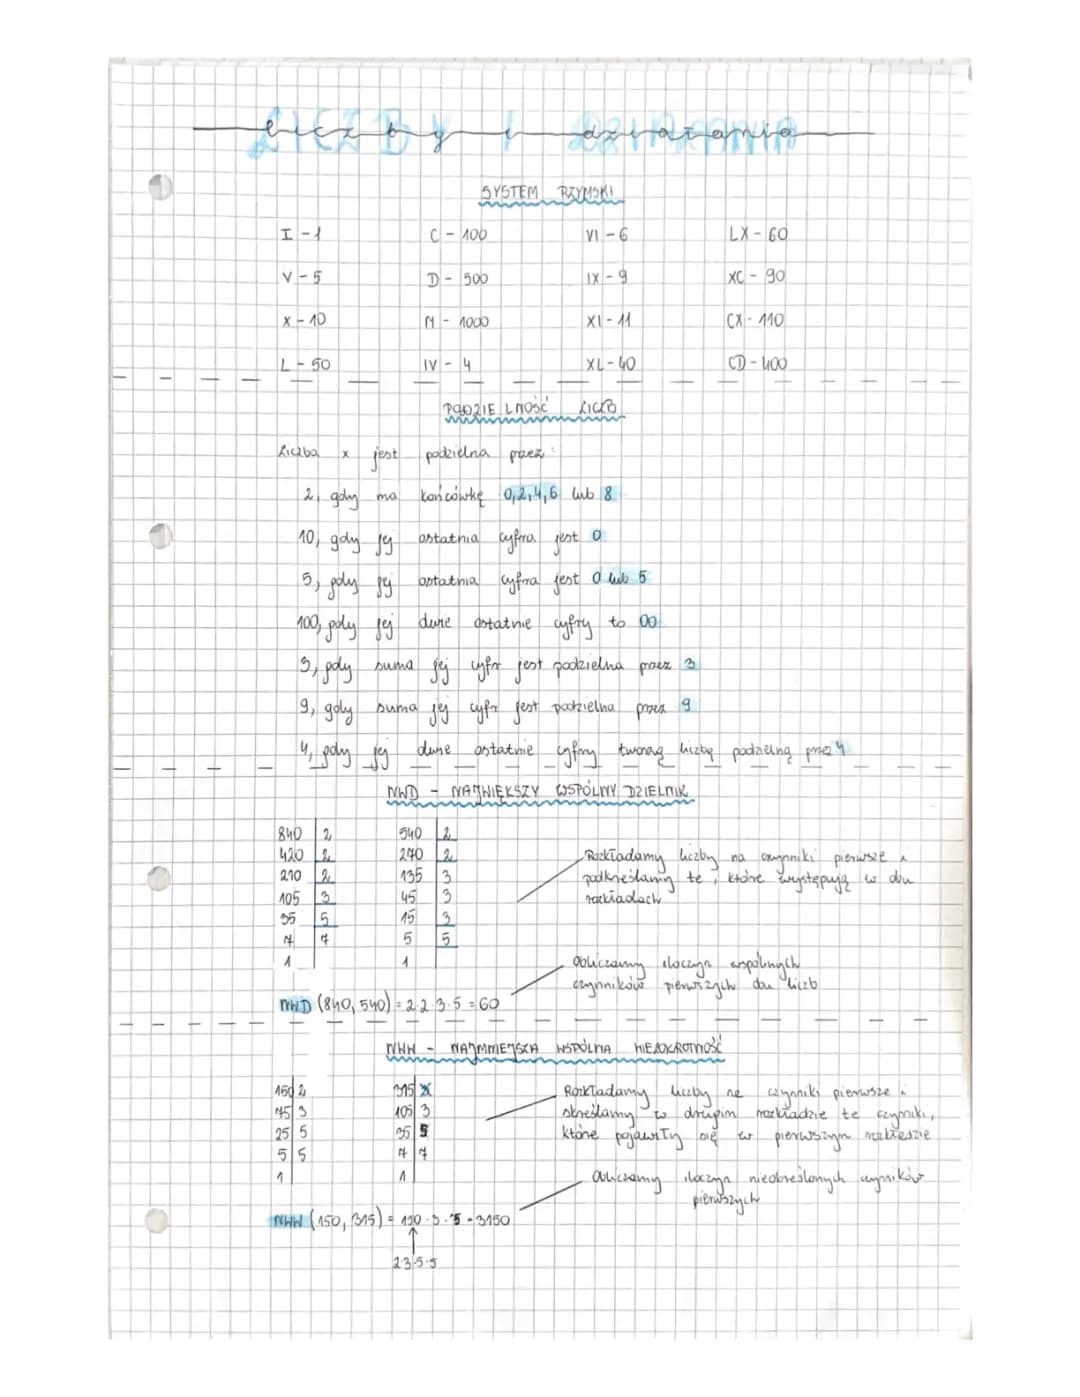 liczby i działania
SYSTEM RZYMSKI
I - 1 C - 100 VI - 6 LX - 60
V - 5 D - 500 IX - 9 XC - 90
X - 10 M - 1000 XI - 11 CX - 110
L - 50 IV - 4 XL - 40 CD - 400
PODZIELNOŚĆ LICZB
Liczba x jest podzielna przez :
2, gdy ma końcówkę 0,2,4,6 lub 8
10, gdy jej ostatnia cyfra jest 0
5, gdy jej ostatnia cyfra jest 0 lub 5
100, gdy jej dwie ostatnie cyfry to 00
3, gdy suma jej cyfr jest podzielna przez 3
9, gdy suma jej cyfr jest podzielna przez 9
4, gdy jej dwie ostatnie cyfry tworzą liczbę podzielną przez 4
NWD - NAJWIĘKSZY WSPÓLNY DZIELNIK
840 2 540 2
420 2 270 2
210 2 135 3
105 3 45 3
35 5 15 3
7 7 5 5
1 1
Rozkładamy liczby na czynniki pierwsze i
podkreślamy te, które występują w obu
rozkładach
Obliczamy iloczyn wspólnych
czynników pierwszych obu liczb
NWD (840, 540) = 2·2·3·5 = 60
NWW - NAJMNIEJSZA WSPÓLNA WIELOKROTNOŚĆ
150 2 315 3
75 3 105 3
25 5 35 5
5 5 7 7
1 1
Rozkładamy liczby na czynniki pierwsze i
skreślamy w drugim rozkładzie te czynniki,
które pojawiły się w pierwszym rozkładzie
Obliczamy iloczyn nieskreślonych czynników
pierwszych
NWW (150, 315) = 150 · 3 · = 3150
2·3·5·5